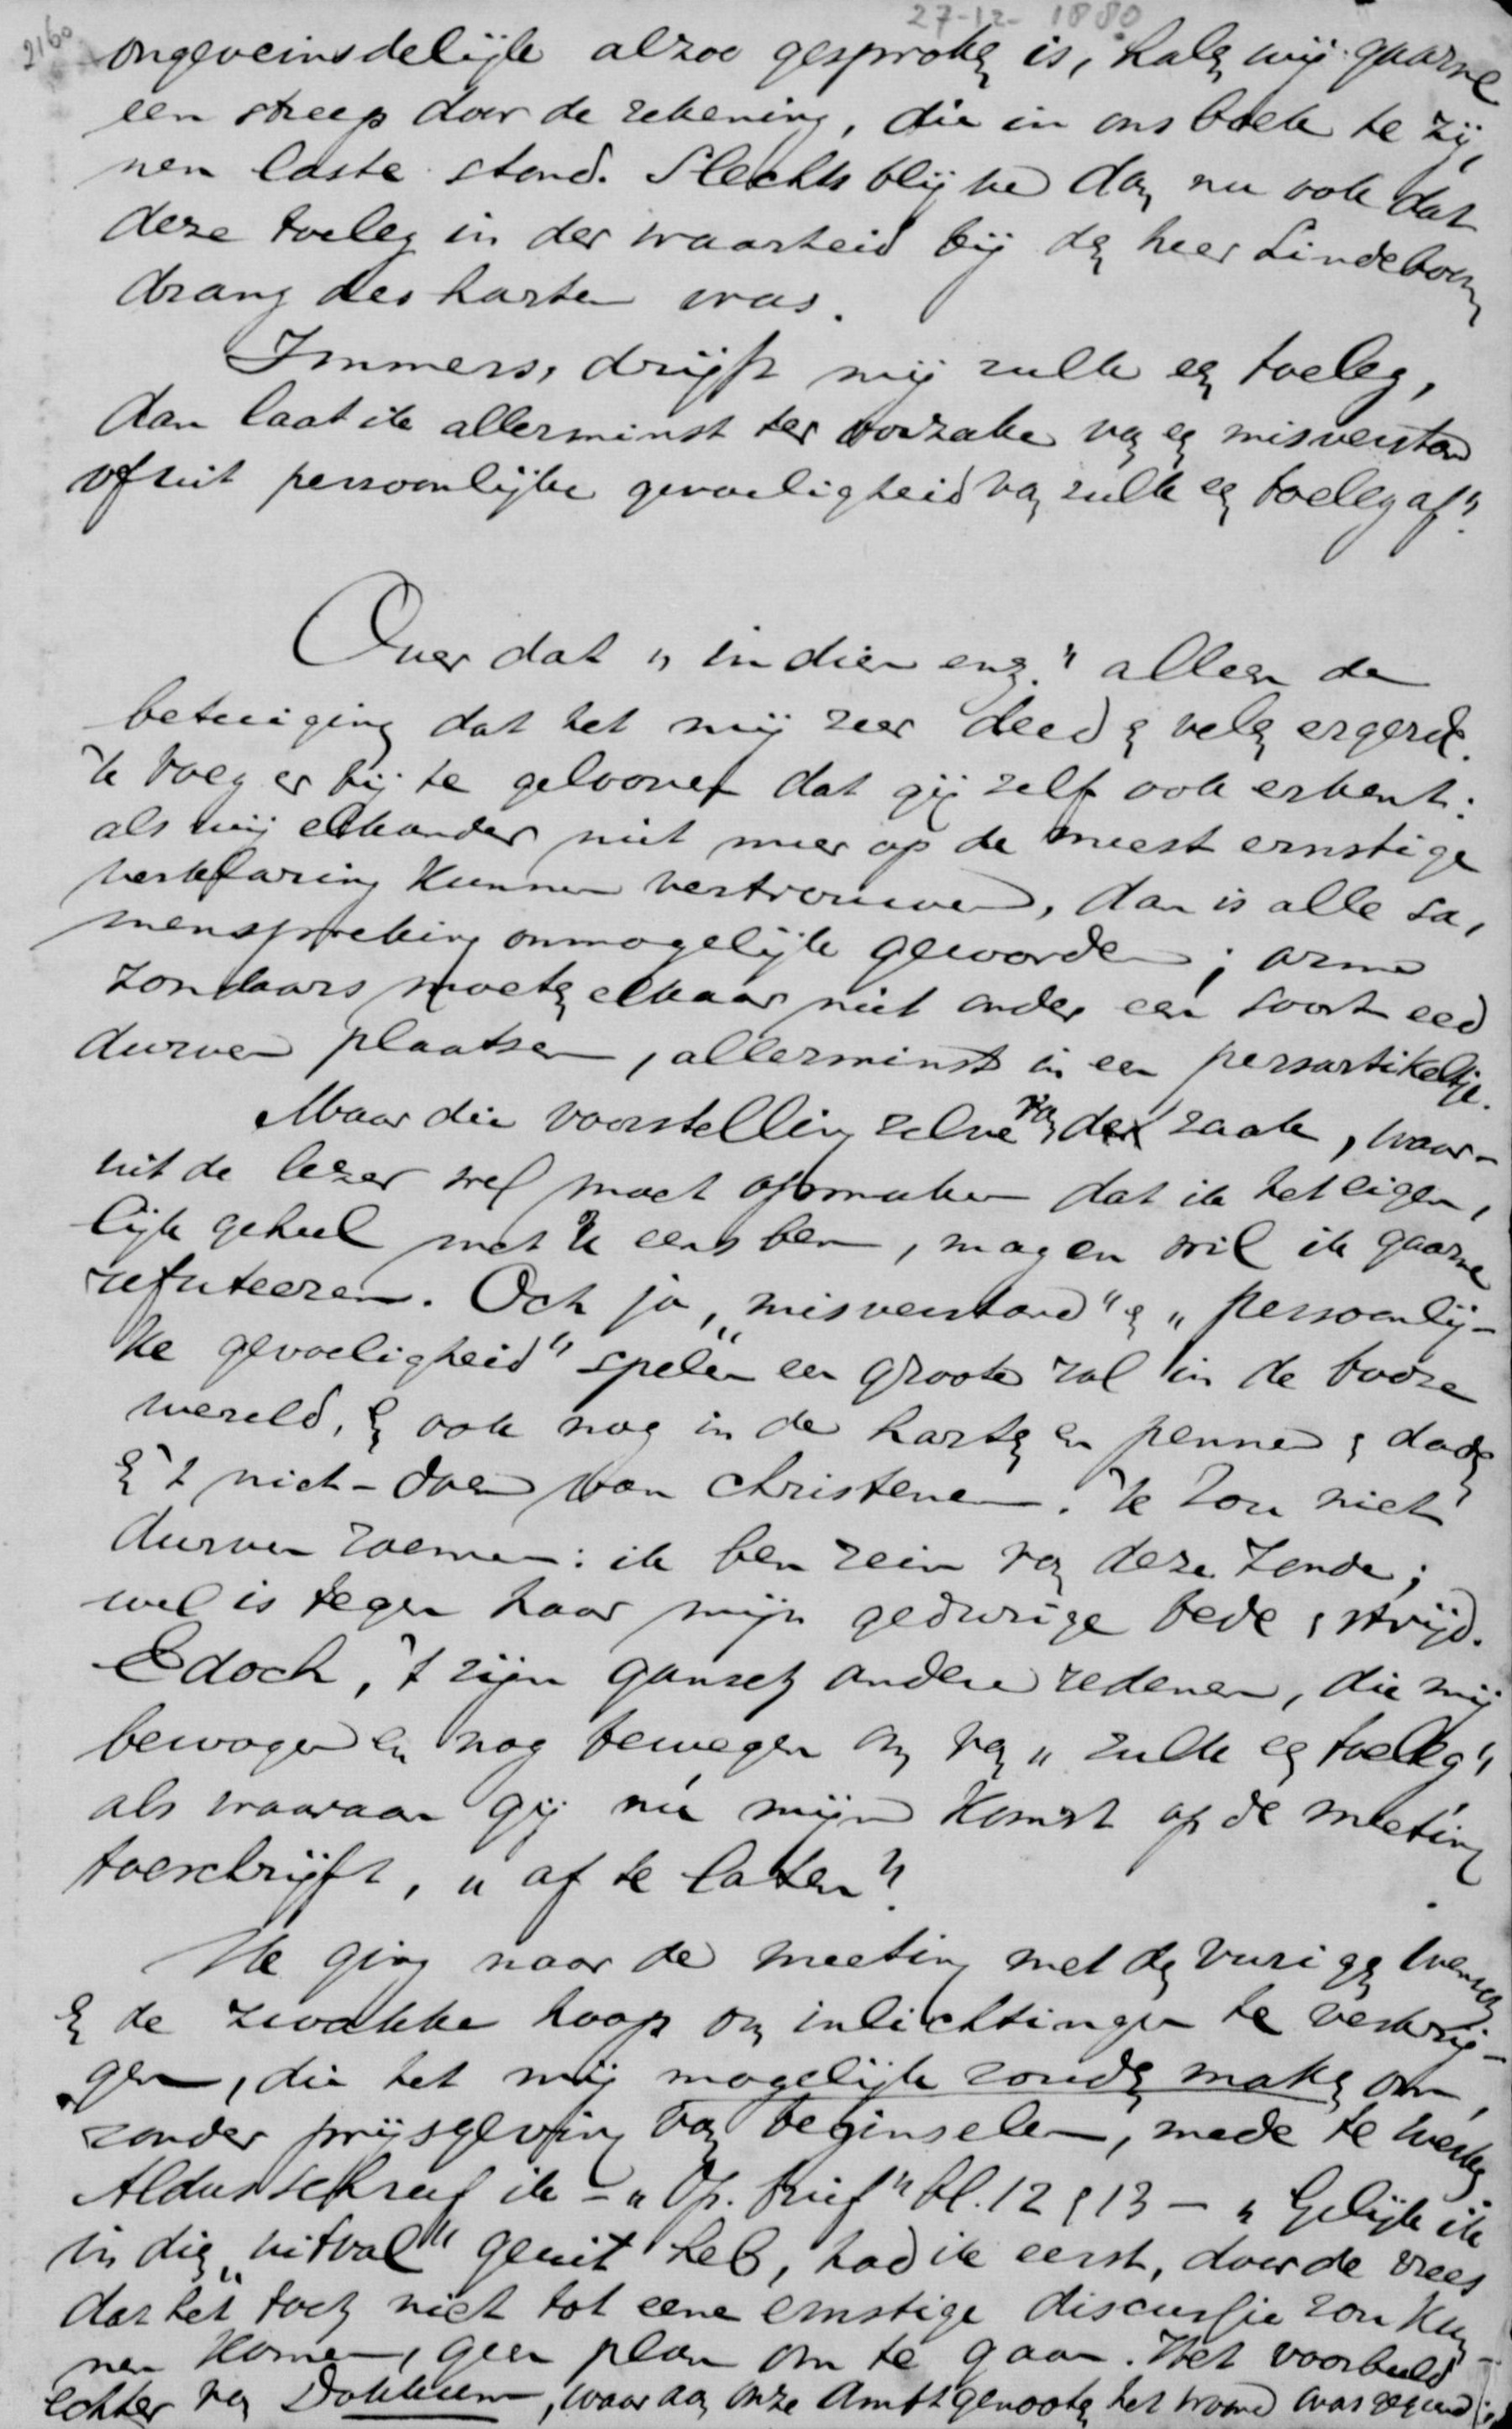 27-12-1880
2160
ongeveinsdelijk alzoo gesproken is, halen wij gaarne
een streep door de rekening, die in ons boek te zij,
nen laste stond. Slechts blijke dan nu ook dat
deze toeleg in der waarheid bij den heer Lindeboom
drang des harten was.
Immers, drijft mij zulk een toeleg,
dan laat ik allerminst ter oorzake van een misverstand
of uit persoonlijke gevoeligheid van zulk een toeleg af".
Over dat „indien enz." alleen de
betuiging dat het mij zeer deed en velen ergerde.
'k Voeg er bij te gelooven dat gij zelf ook erkent:
als wij elkander niet meer op de meest ernstige
verklaring kunnen vertrouwen, dan is alle sa,
menspreking onmogelijk geworden; arme
zondaars moeten elkaar niet onder een soort eed
durven plaatsen, allerminst in een persartikeltje.
Maar die voorstelling zelve van de zaak, waar-
uit de lezer wel moet opmaken dat ik het eigen,
lijk geheel met U eens ben, mag en wil ik gaarne
refuteeren. Och ja, „misverstand" en „persoonlij-
ke gevoeligheid" spelen een groote rol in de booze
wereld, en ook nog in de harten en pennen en daden
en 't niet-doen van Christenen. 'k Zou niet
durven roemen: ik ben rein van deze zonde;
wel is tegen haar mijn gedurige bede en strijd.
Edoch, 't zijn gansch andere redenen, die mij
bewogen en nog bewegen om van „zulk een toeleg",
als waaraan gij nú mijn komst op de meeting
toeschrijft, „af te laten".
Ik ging naar de meeting met den vurigen wensch
en de zwakke hoop om inlichtingen te verkrij-
gen, die het mij mogelijk zouden maken om,
zonder prijsgeving van beginselen, mede te werken
Aldus schreef ik - „Op. brief" bl. 12 en 13 - „Gelijk ik
in dien „uitval" geuit heb, had ik eerst, door de vrees
dat het toch niet tot eene ernstige discussie zou kun-
nen komen, geen plan om te gaan. Het voorbeeld
echter van Dokkum, waar aan onze Ambtgenooten het woord was gegund